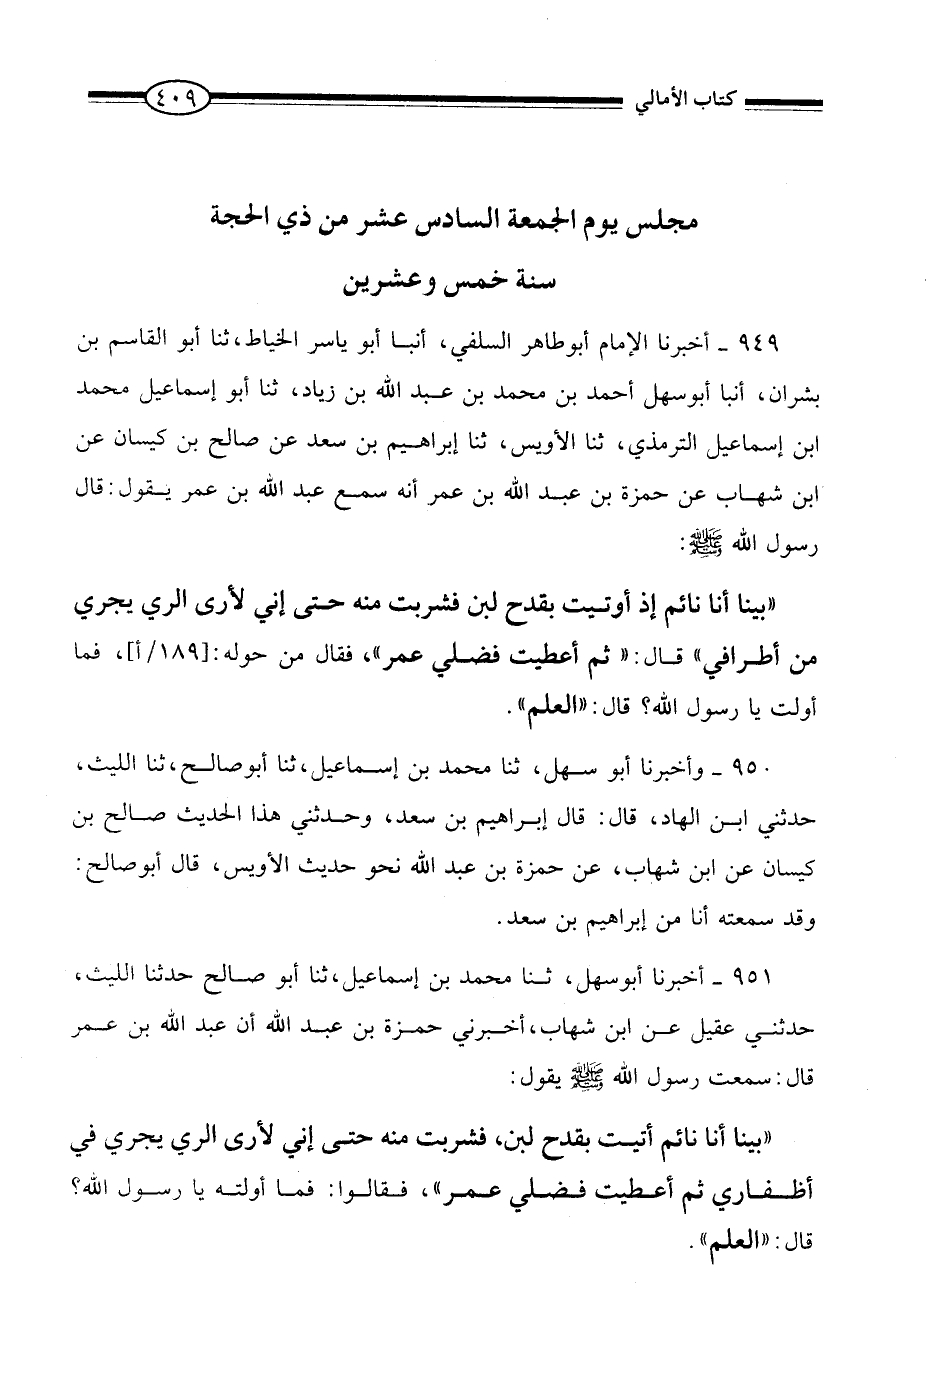 كتاب الأمالي ٤٠٩
مجلس يوم الجمعة السادس عشر من ذي الحجة
سنة خمس وعشرين
٩٤٩ ـ أخبرنا الإمام أبوطاهر السلفي، أنبا أبو ياسر الخياط،ثنا أبو القاسم بن
بشران، أنبا أبوسهل أحمد بن محمد بن عبد الله بن زياد، ثنا أبو إسماعيل محمد
ابن إسماعيل الترمذي، ثنا الأويس، ثنا إبراهيم بن سعد عن صالح بن كيسان عن
ابن شهاب عن حمزة بن عبد الله بن عمر أنه سمع عبد الله بن عمر يقول:قال
رسول الله ﷺ:
«بينا أنا نائم إذ أوتيت بقدح لبن فشربت منه حتى إني لأرى الري يجري
من أطرافي» قال:« ثم أعطيت فضلي عمر»، فقال من حوله:[١٨٩/أ]، فما
أولت يا رسول الله؟ قال:«العلم».
٩٥٠ ـ وأخبرنا أبو سهل، ثنا محمد بن إسماعيل،ثنا أبوصالح،ثنا الليث،
حدثني ابن الهاد، قال: قال إبراهيم بن سعد، وحدثني هذا الحديث صالح بن
كيسان عن ابن شهاب، عن حمزة بن عبد الله نحو حديث الأويس، قال أبوصالح:
وقد سمعته أنا من إبراهيم بن سعد.
٩٥١ ـ أخبرنا أبوسهل، ثنا محمد بن إسماعيل،ثنا أبو صالح حدثنا الليث،
حدثني عقيل عن ابن شهاب،أخبرني حمزة بن عبد الله أن عبد الله بن عمر
قال:سمعت رسول الله ﷺ يقول:
«بينا أنا نائم أتيت بقدح لبن، فشربت منه حتى إني لأرى الري يجري في
أظفاري ثم أعطيت فضلي عمر»، فقالوا: فما أولته يا رسول الله؟
قال:«العلم».